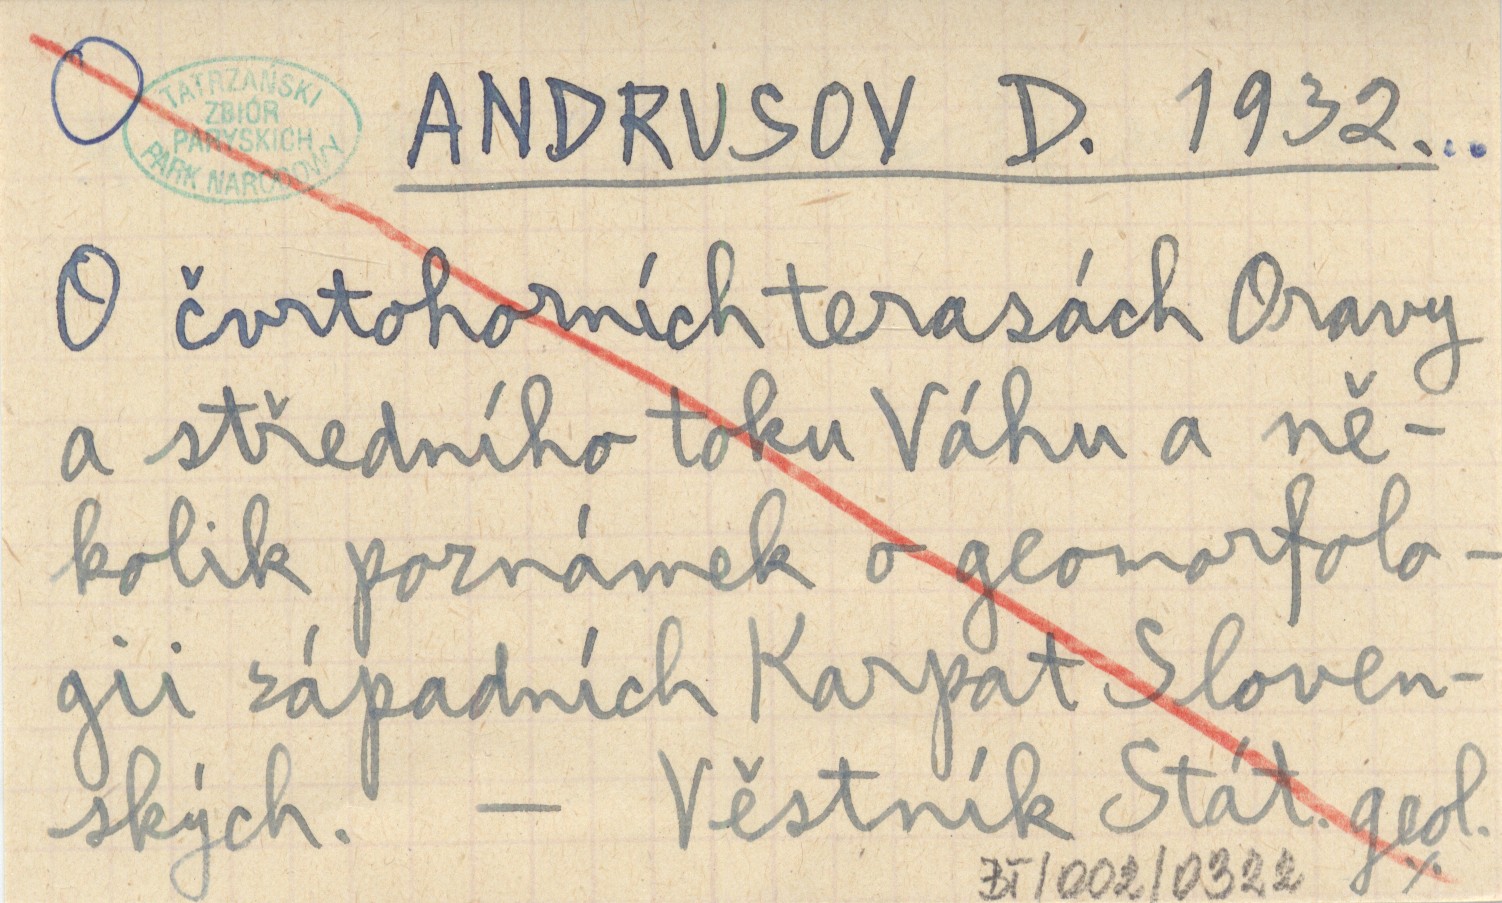 O
TATRZAŃSKI
ZBIÓR
PARYSKICH
PARK NARODOWY
ANDRUSOV D. 1932...
O čvrtohorních terasách Oravy
a středního toku Váhu a ně-
kolik poznámek o geomorfolo-
gii západních Karpat Sloven-
ských. — Věstník Stát. geol.
BT/002/0322